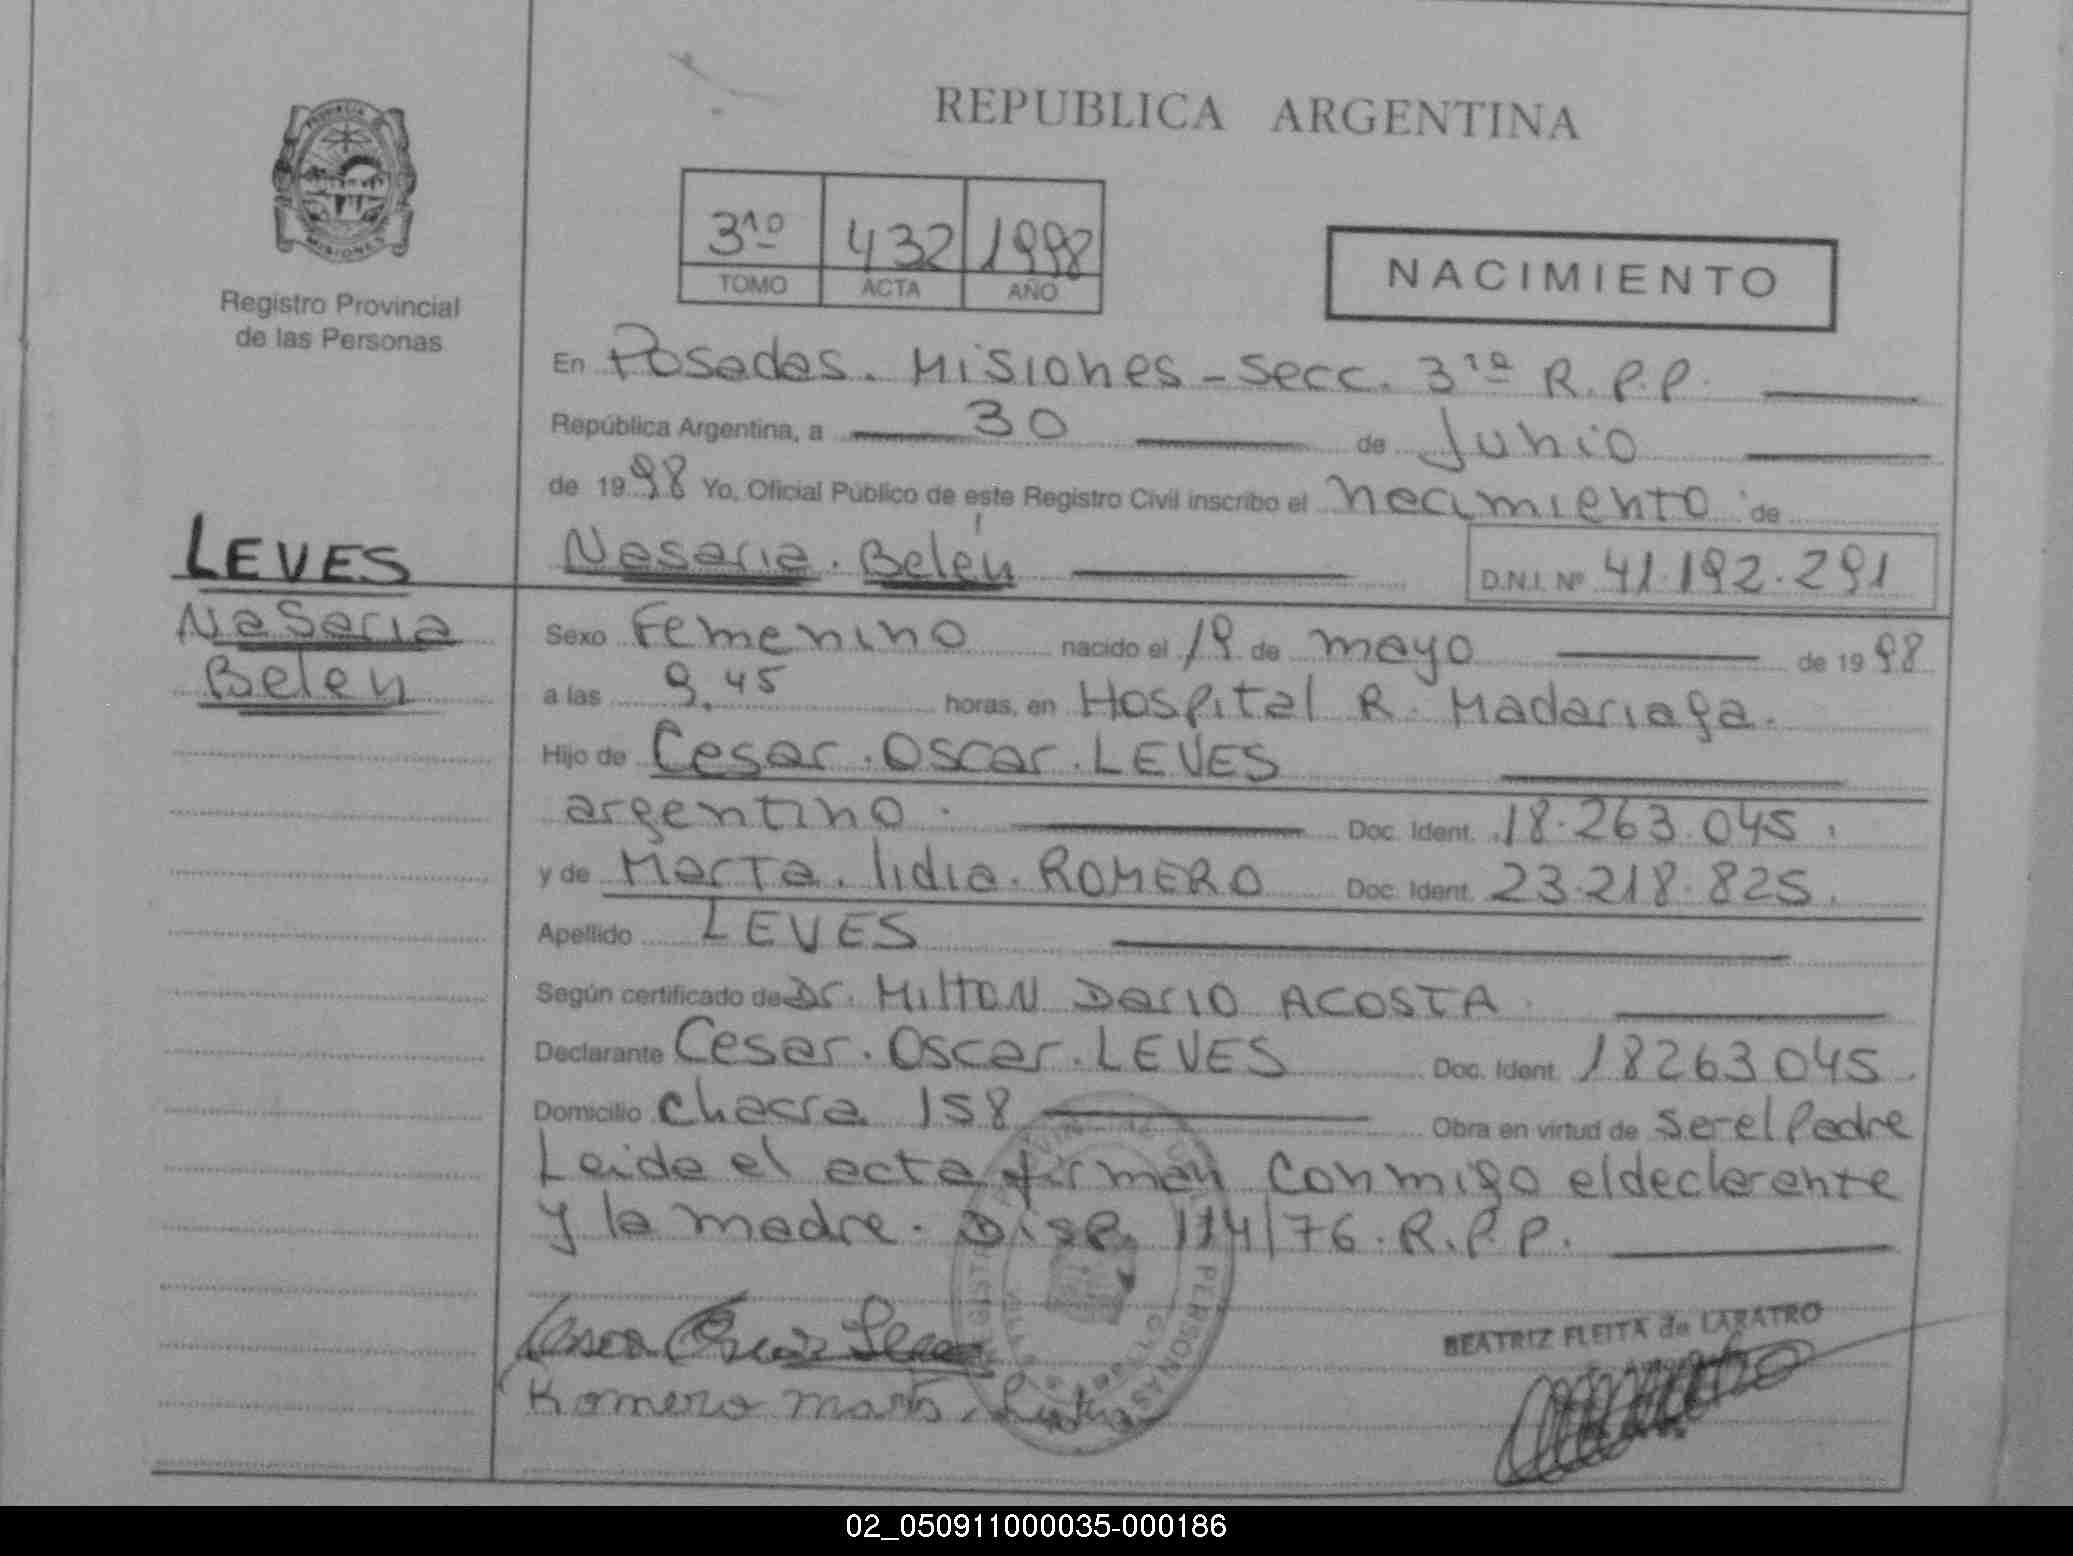 REPUBLICA ARGENTINA
Registro Provincial
de las Personas
3ro 432 1998
TOMO ACTA AÑO
NACIMIENTO
En Posadas. Misiones - Secc. 3ra R.P.P.
República Argentina, a 30 de Junio
de 1998 Yo, Oficial Público de este Registro Civil inscribo el nacimiento de
LEVES
Nasaria
Belen
Nasaria. Belén D.N.I. Nº 41.192.291
Sexo Femenino nacido el 19 de mayo de 1998
a las 9.45 horas, en Hospital R. Madariaga.
Hijo de Cesar. Oscar. LEVES
argentino. Doc. Ident. 18.263.045.
y de Marta. lidia. ROMERO Doc. Ident. 23.218.825.
Apellido LEVES
Según certificado de Dr. MiltoN Dario ACOSTA
Declarante Cesar. Oscar. LEVES Doc. Ident. 18263045.
Domicilio Chacra 158 Obra en virtud de ser el Padre
Leida el acta firman conmigo el declarante
y la madre. Disp. 114/76. R.P.P.
BEATRIZ FLEITA de LABATRO
Romero Marta
02_050911000035-000186